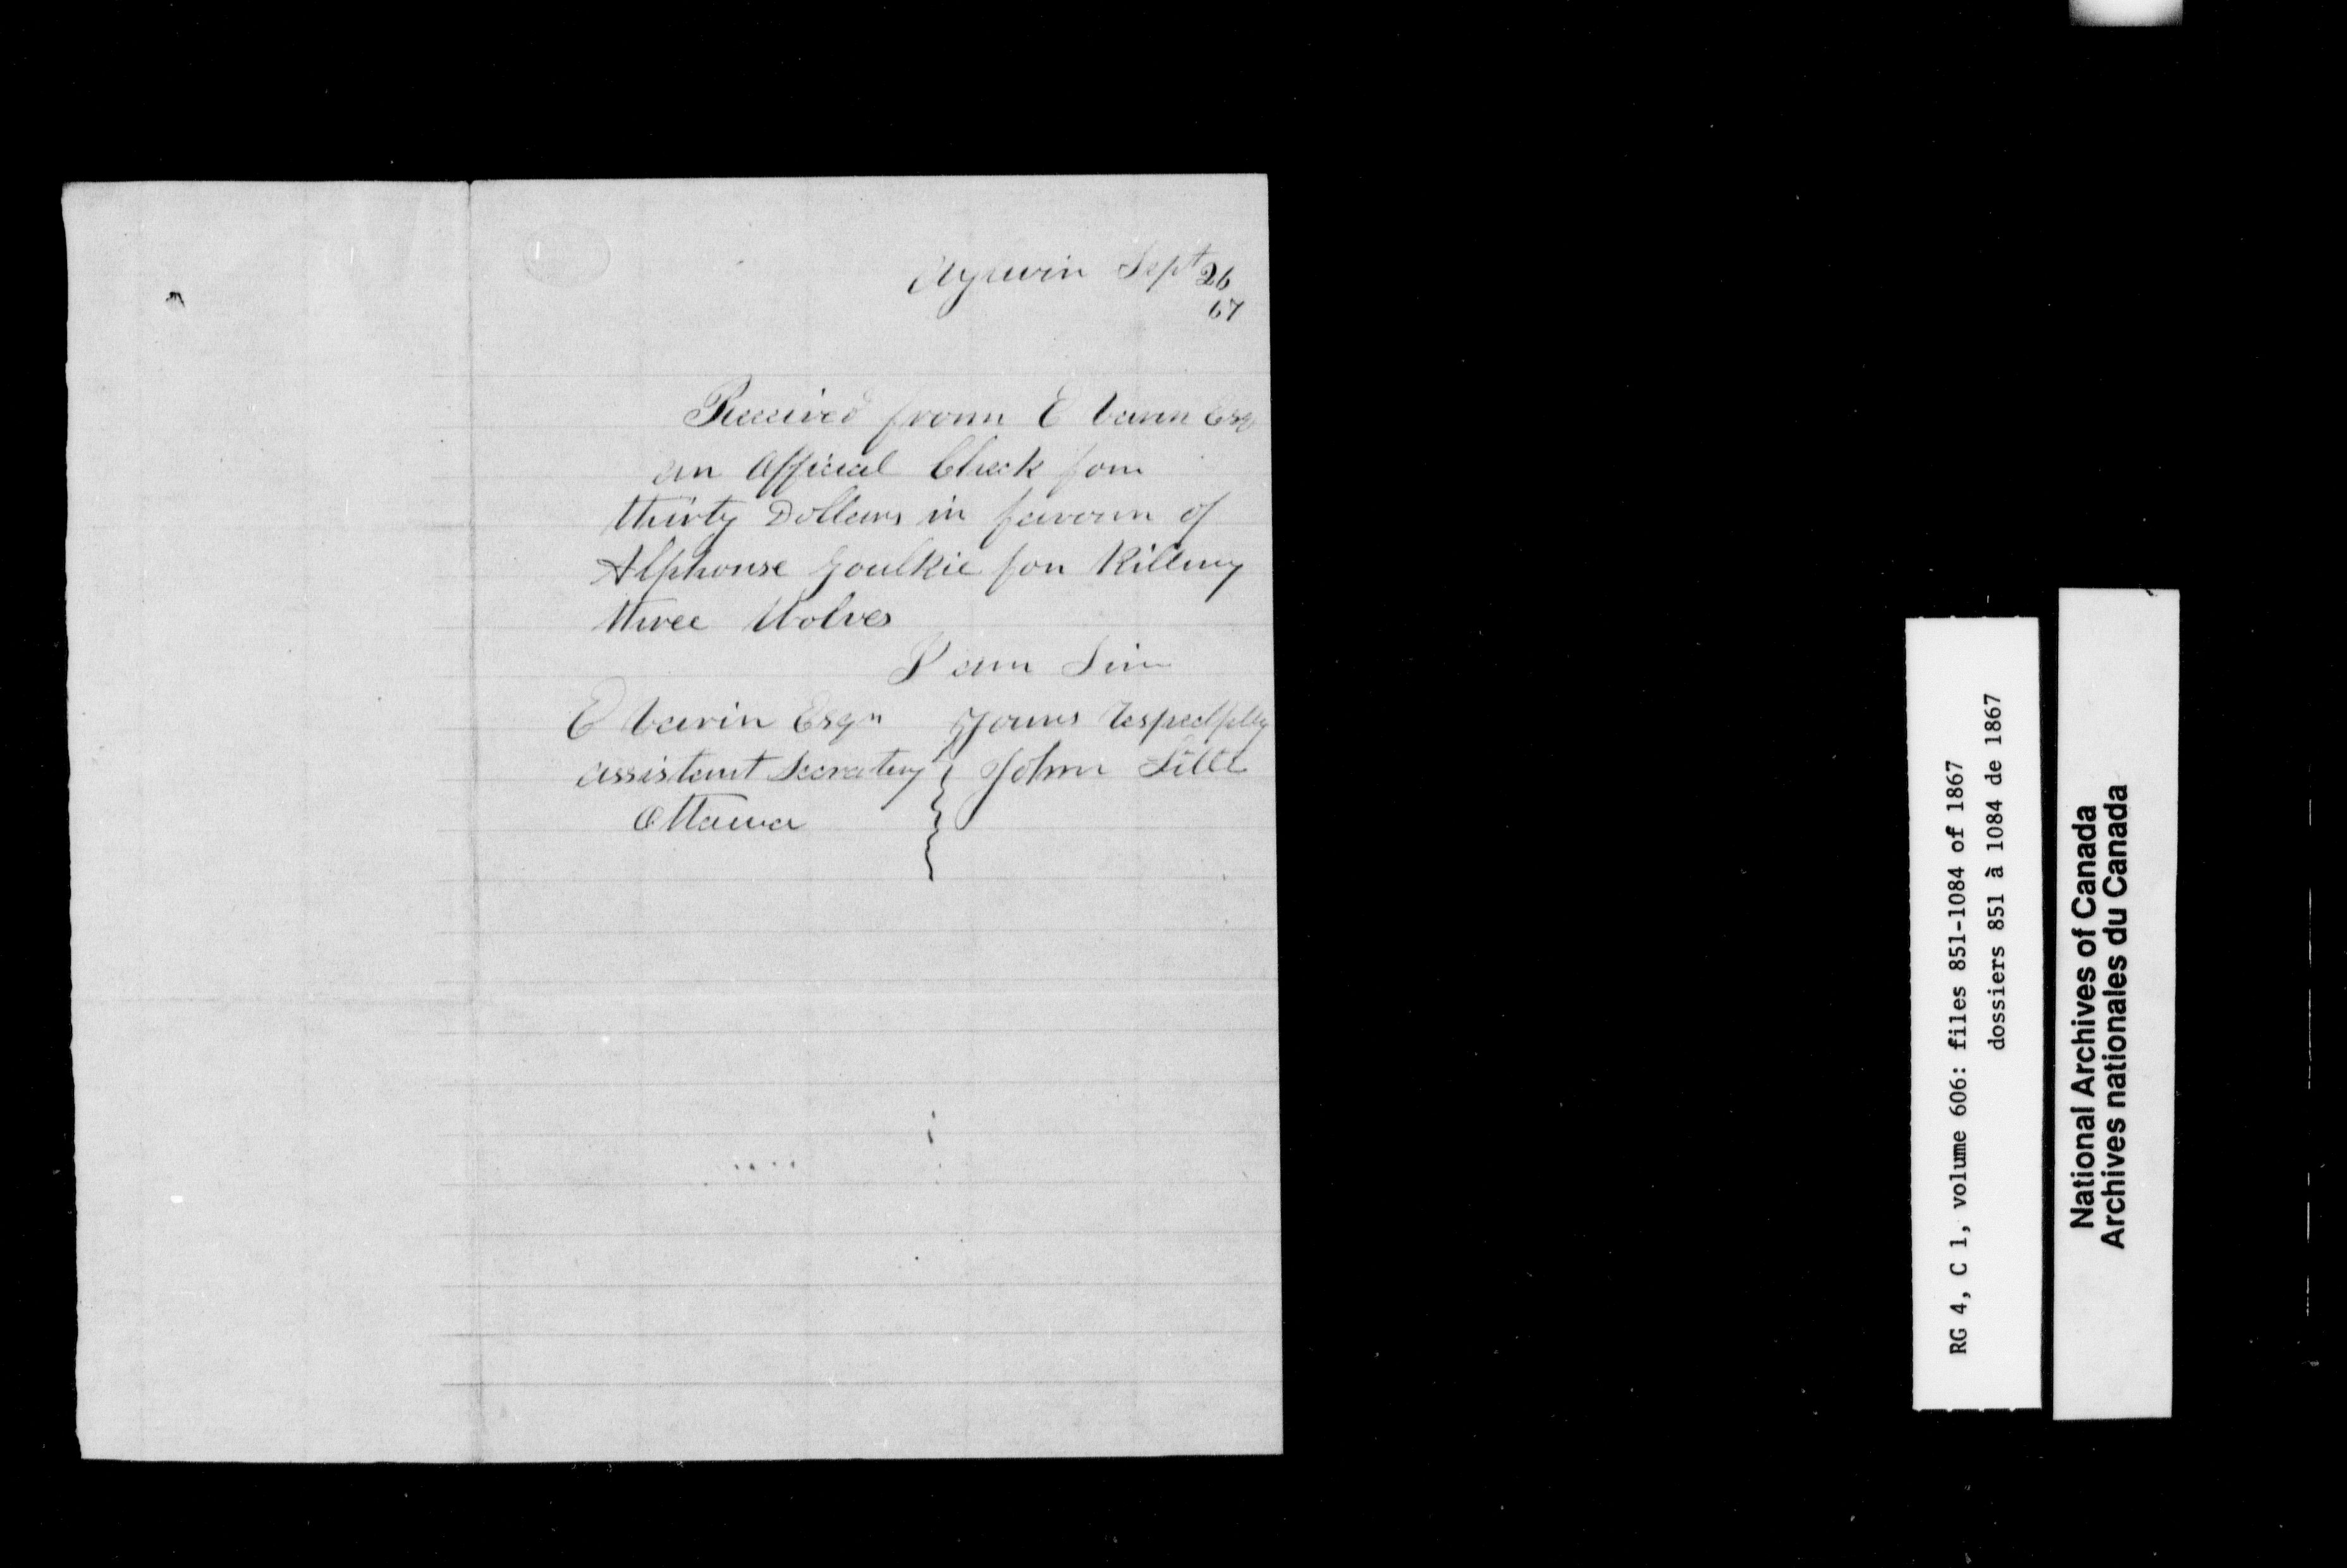 Aylwin Sept 26
67
Received from E Parin Esq
an official Check for
thirty Dollars in favour of
Alphonse Goulkie for Killing
three Wolves
I am Sir
E Parin Esqr Yours respectfully
assistant Secretary John
Ottawa
RG 4, C 1, volume 606: files 851-1084 of 1867
dossiers 851 à 1084 de 1867
National Archives of Canada
Archives nationales du Canada